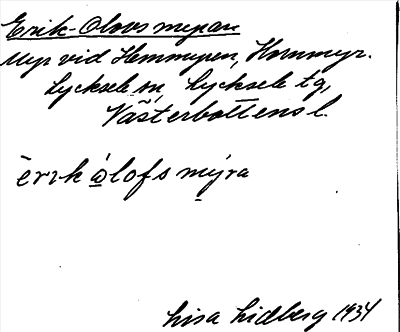 Erik-Olovs myran
Myr vid Hemmyren, Hornmyr.
Lycksele sn, Lycksele tg,
Västerbottens l.
ērɩk ålofs my̆ra
Lisa Lidberg 1934